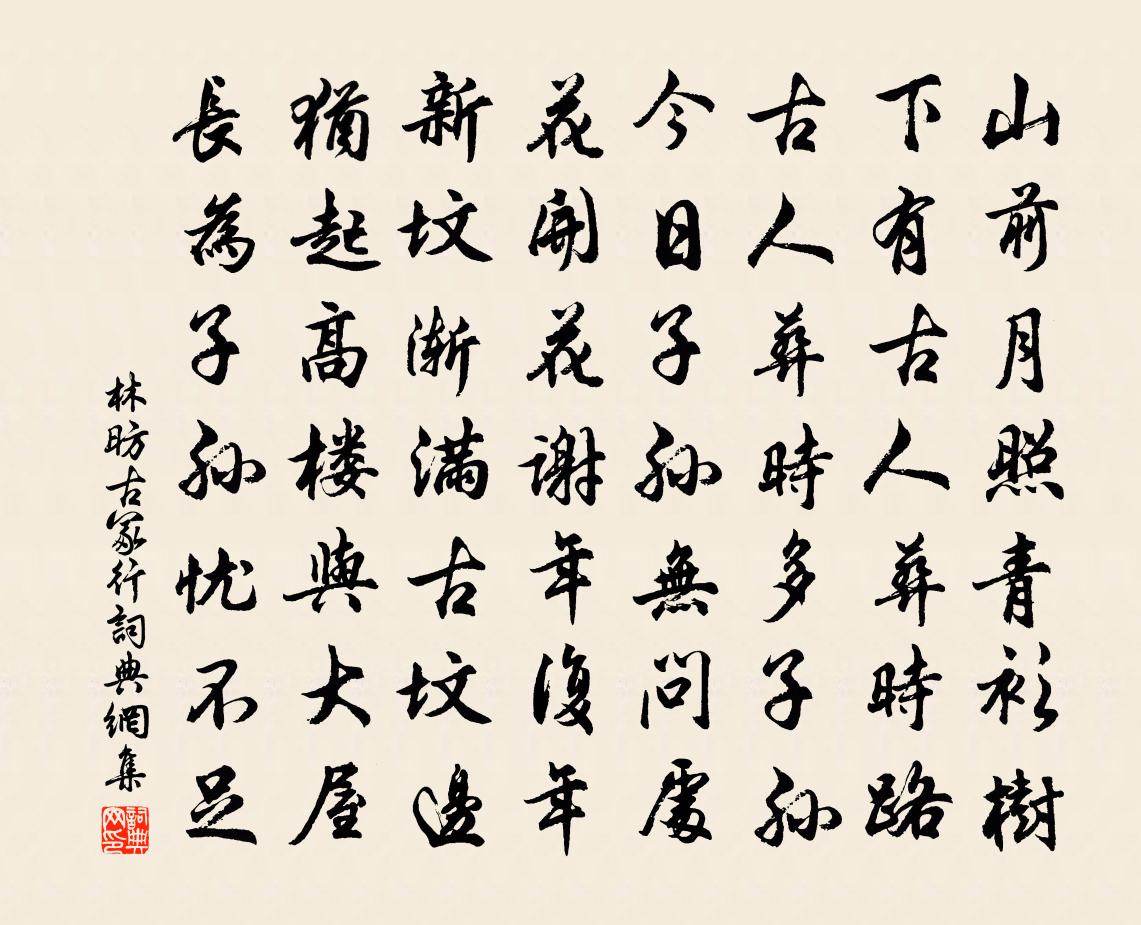 山前月照青衫樹
下有古人葬時路
古人葬時多子孫
今日子孫無問處
花開花謝年復年
新坟漸滿古坟邊
猶起高楼與大屋
長為子孫忧不足
林昉古冢行詞典網集
詞典網印